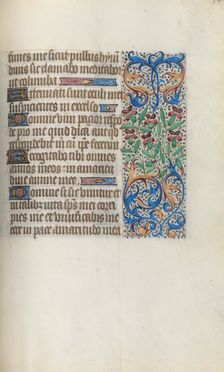 finies me sicut pullus hyru
dinis sic clamabo meditabor
ut columba
Attenuati sunt oculi mei
suspicientes in excelso
Domine vim patior respo
de pro me quid dicam aut qd
respondebit m cum fecerit
Recogitabo tibi omnes
annos meos: in amaritu
dine anime mee
Domine si sic vivitur et
in talibz vita sps mei corri
pies me et vivificabis me
ecce in pace amaritudo mea